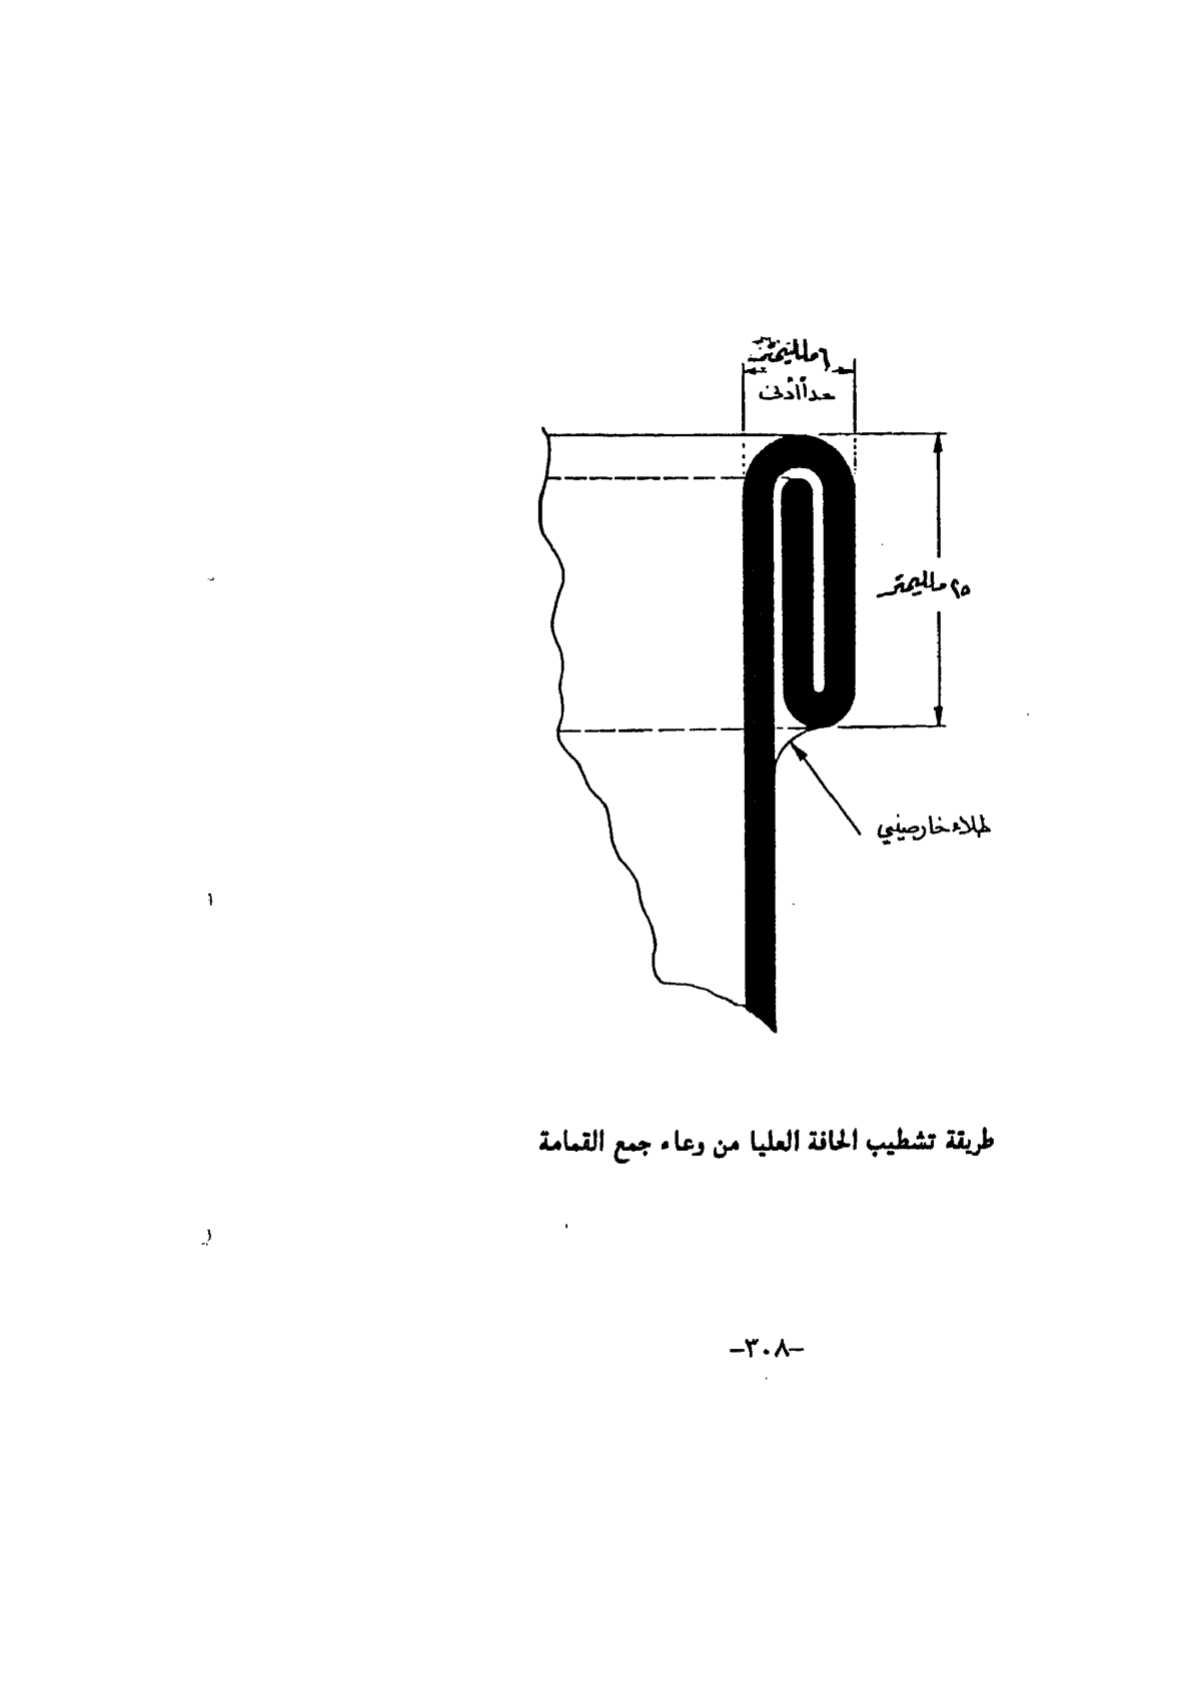 ٦ ملليمتر
حداً أدنى
٢٥ ملليمتر
طلاء خارصيني
طريقة تشطيب الحافة العليا من وعاء جمع القمامة
-٣٠٨-